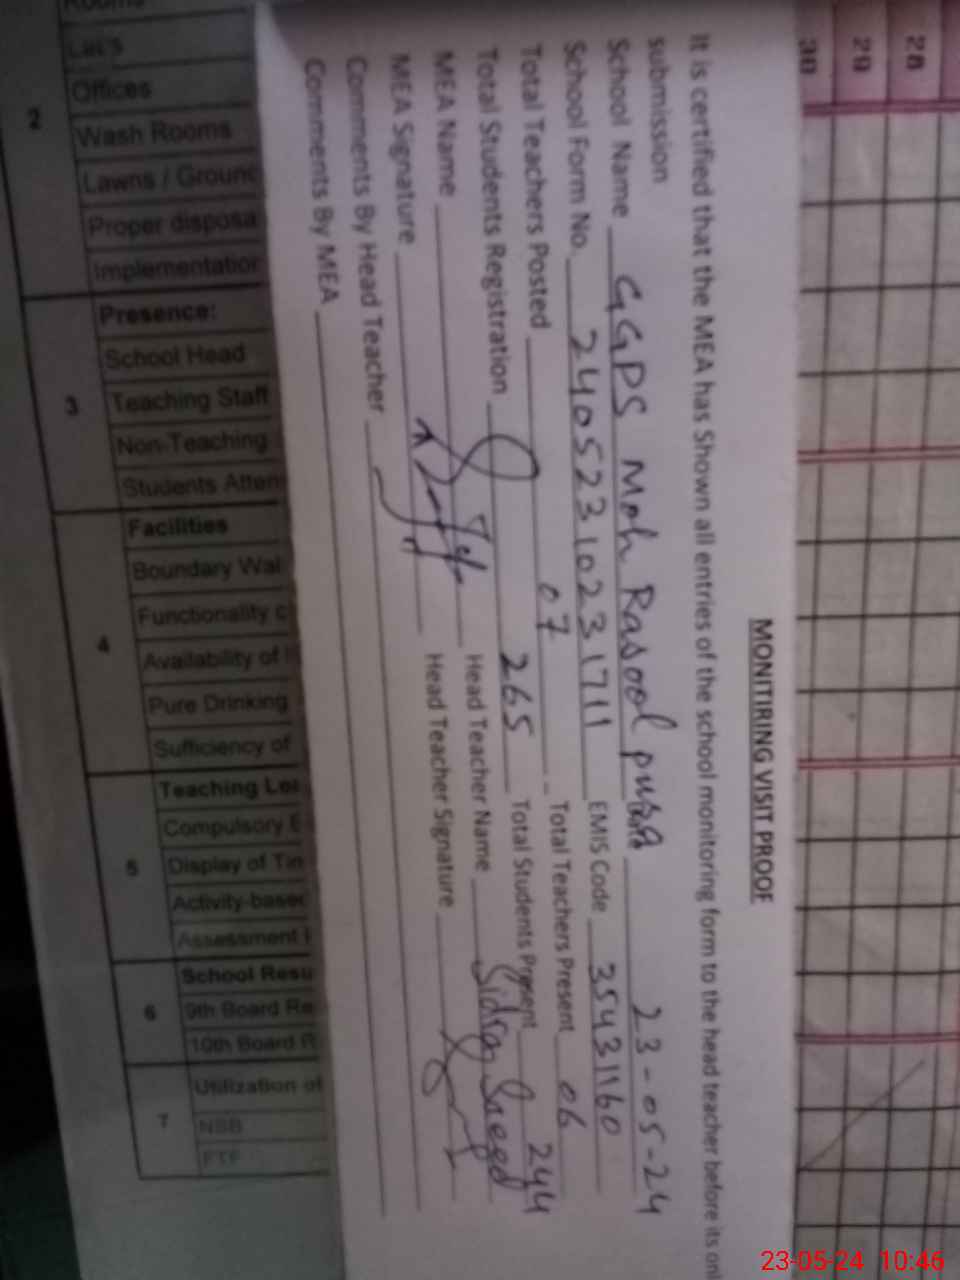 28
29
30
MONITIRING VISIT PROOF
It is certified that the MEA has Shown all entries of the school monitoring form to the head teacher before its onl
submission
School Name GGPS Moh Rasool pura 23-05-24
School Form No. 24052310231711 EMIS Code 35431160
Total Teachers Posted 07 Total Teachers Present 06
Total Students Registration 265 Total Students Present 244
MEA Name Head Teacher Name Sidra Saeed
MEA Signature Head Teacher Signature
Comments By Head Teacher
Comments By MEA
Rooms
Lab's
Offices
2 Wash Rooms
Lawns / Ground
Proper disposa
Implementation
Presence:
School Head
3 Teaching Staff
Non-Teaching
Students Atten
Facilities
Boundary Wal
Functionality c
4 Availability of
Pure Drinking
Sufficiency of
Teaching Le
Compulsory E
5 Display of Tim
Activity-based
Assessment
School Resu
6 9th Board Re
10th Board R
Utilization of
7 NSB
FTF
23-05-24 10:46